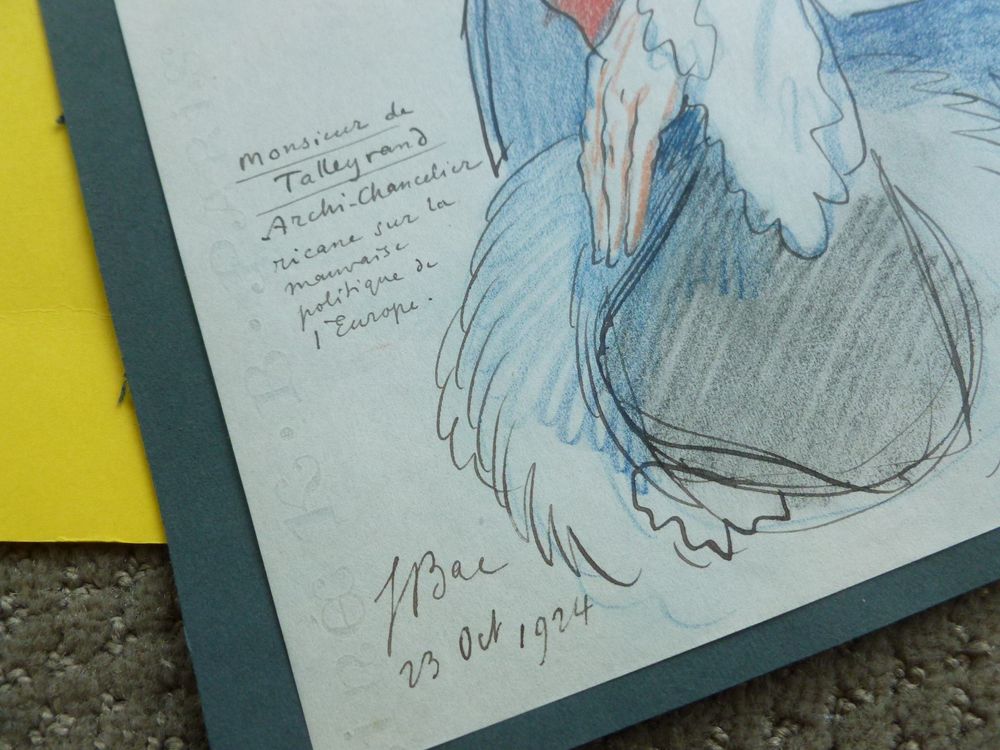 Monsieur de
Talleyrand
Archi-Chancelier
ricane sur la
mauvaise
politique de
l'Europe.
Bac
23 Oct 1924